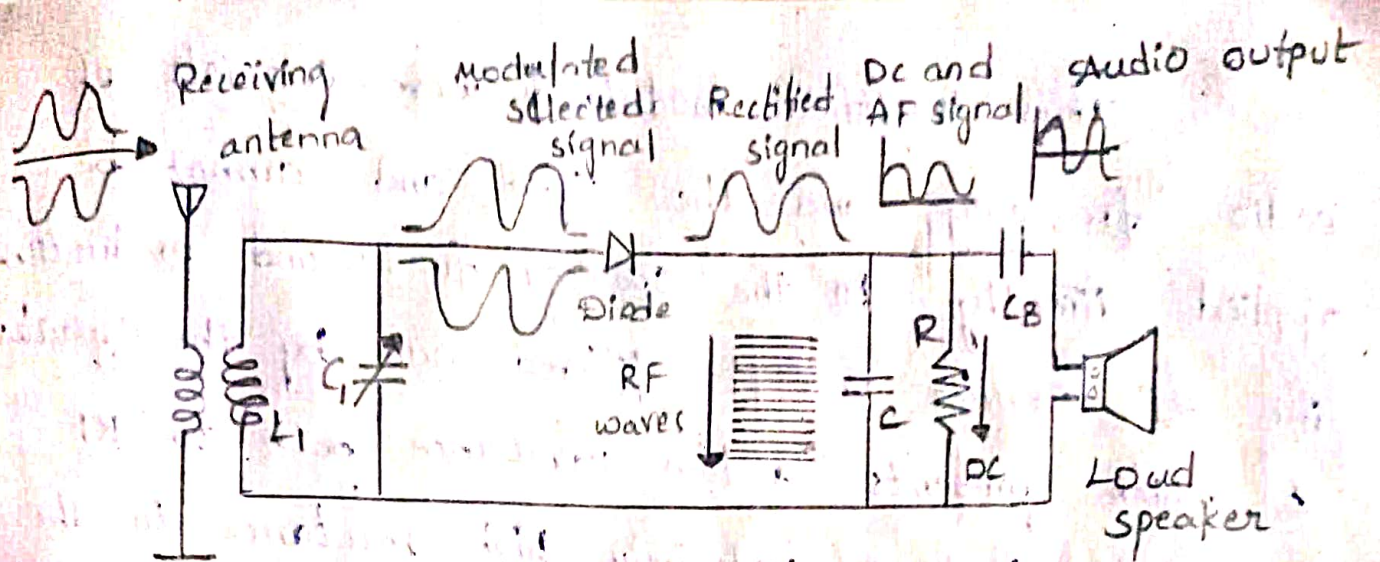 Receiving
antenna
Modulated
selected
signal
Rectified
signal
Dc and
AF signal
Audio output
Diode
CB
C1
L1
RF
waves
R
C
DC
Loud
speaker